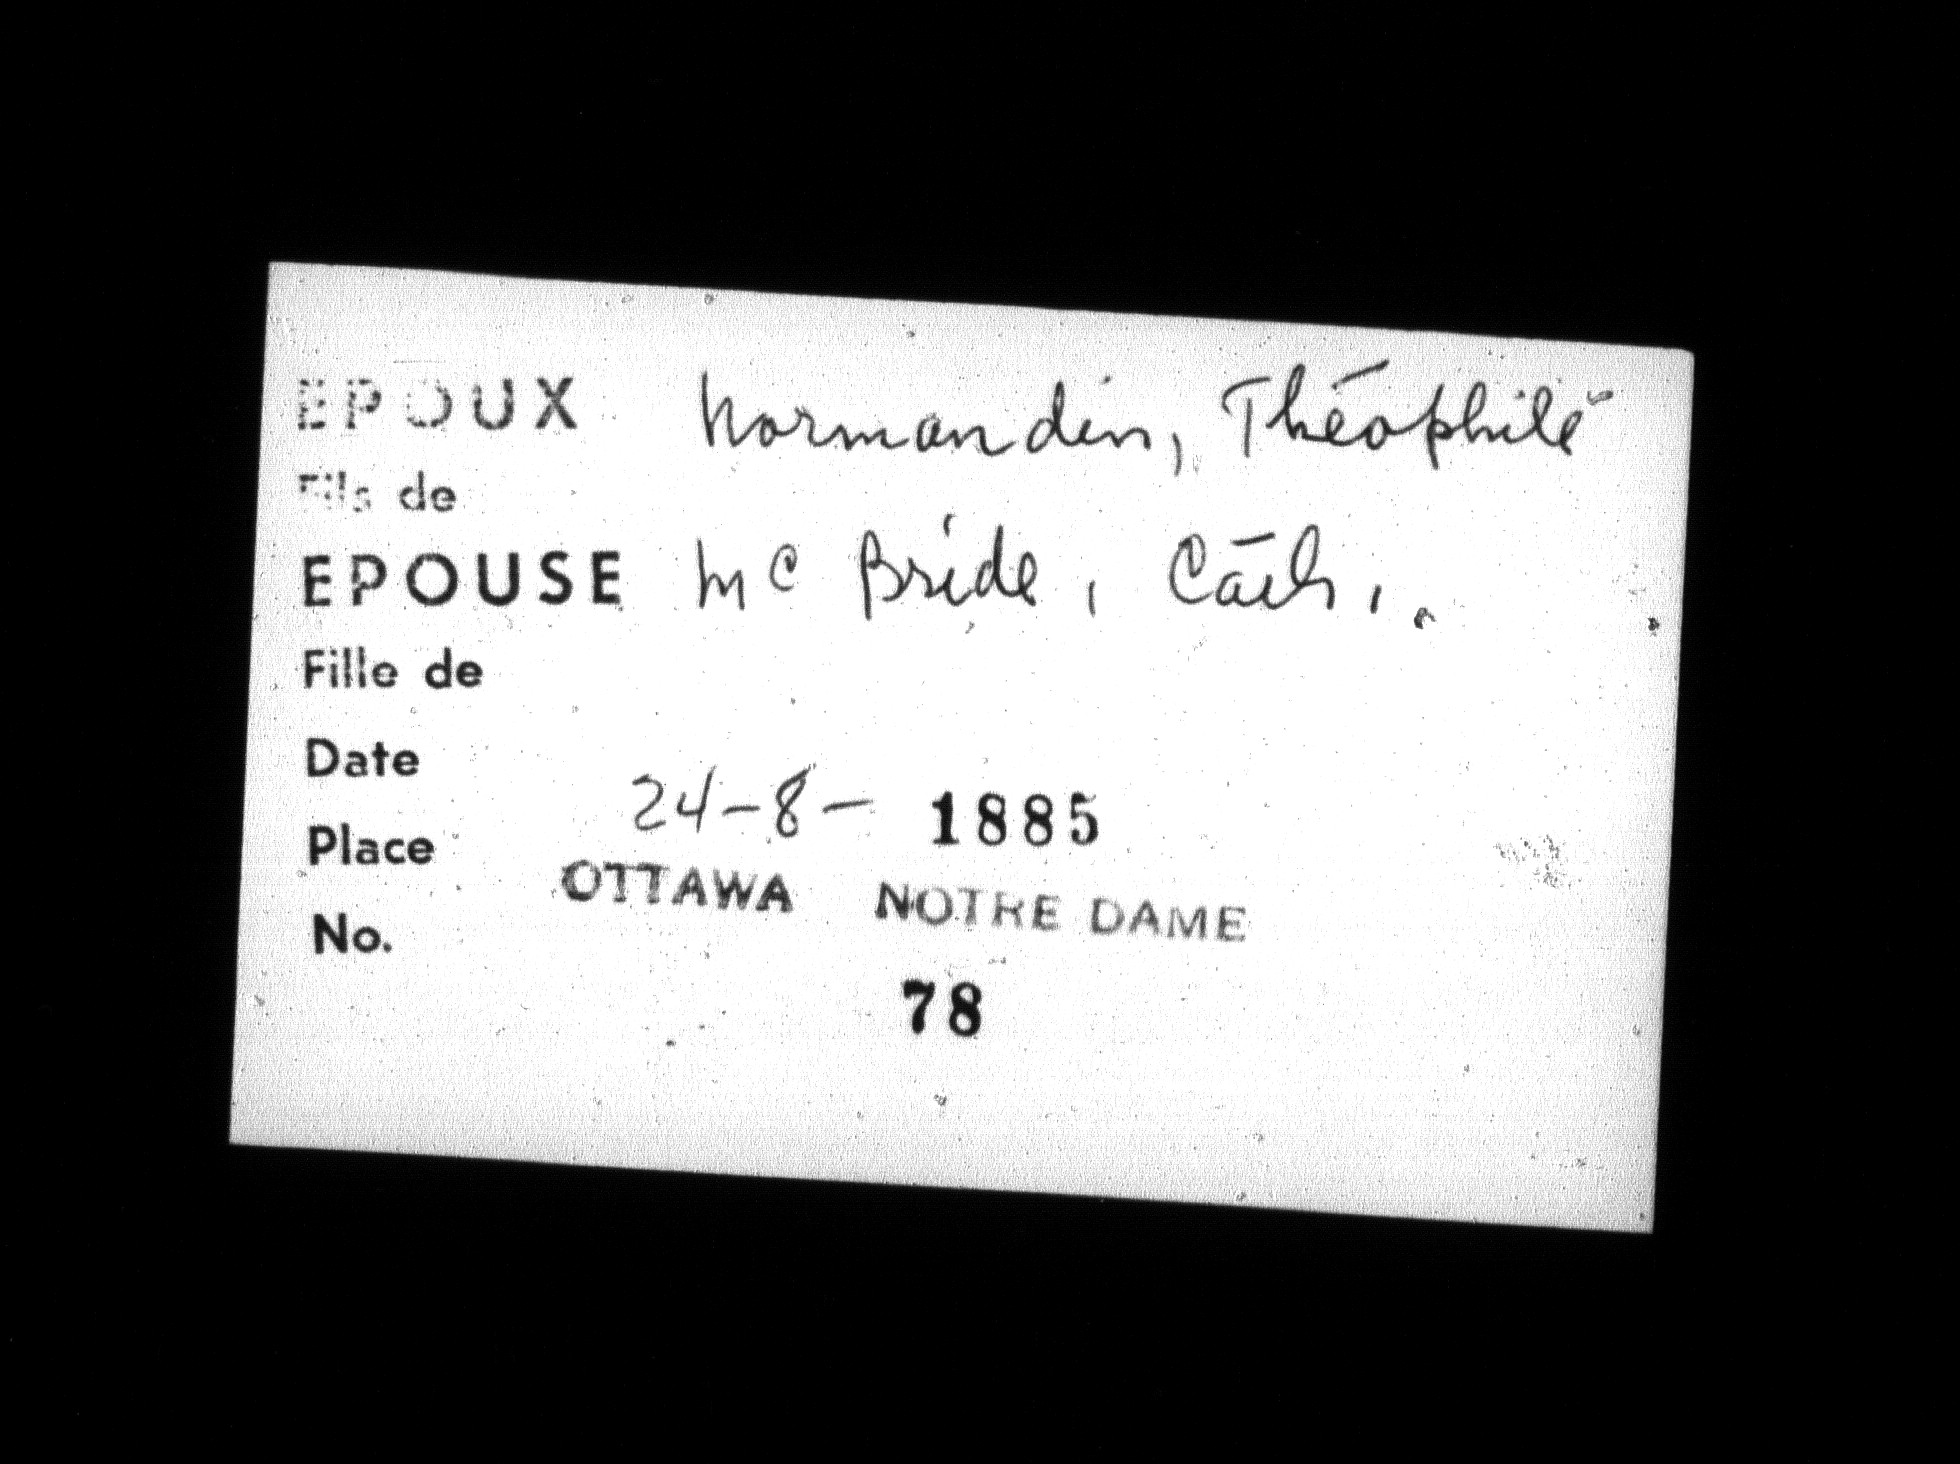 EPOUX Normandin, Théophile
Fils de
EPOUSE Mc Bride, Cath.
Fille de
Date 24-8- 1885
Place OTTAWA NOTRE DAME
No. 78